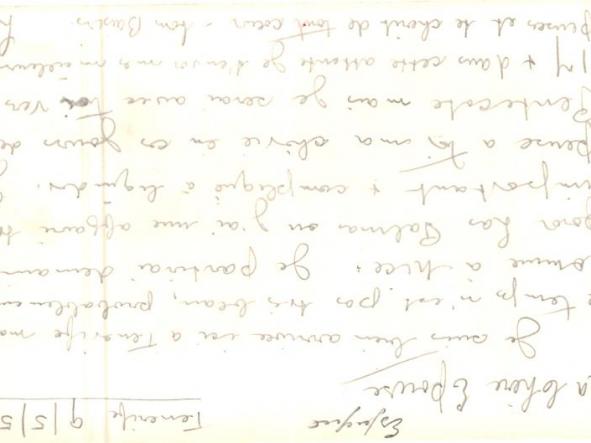 Espagne
Tenerife 9/5/5
a chère Epouse
Je suis bien arrivée ici a Tenerife ma
e temps n'est pas très beau, probablemen
omme a Nice. Je partirai demain
pour Las Palmas ou j'ai une affaire tr
important + compliqué à liquider.
pense a toi ma chérie en ces jours de
Pentecote mais je serai avec toi vers
17 + dans cette attente je t'envoi mes meilleurs
penses et te cherit de tout cœur. ton